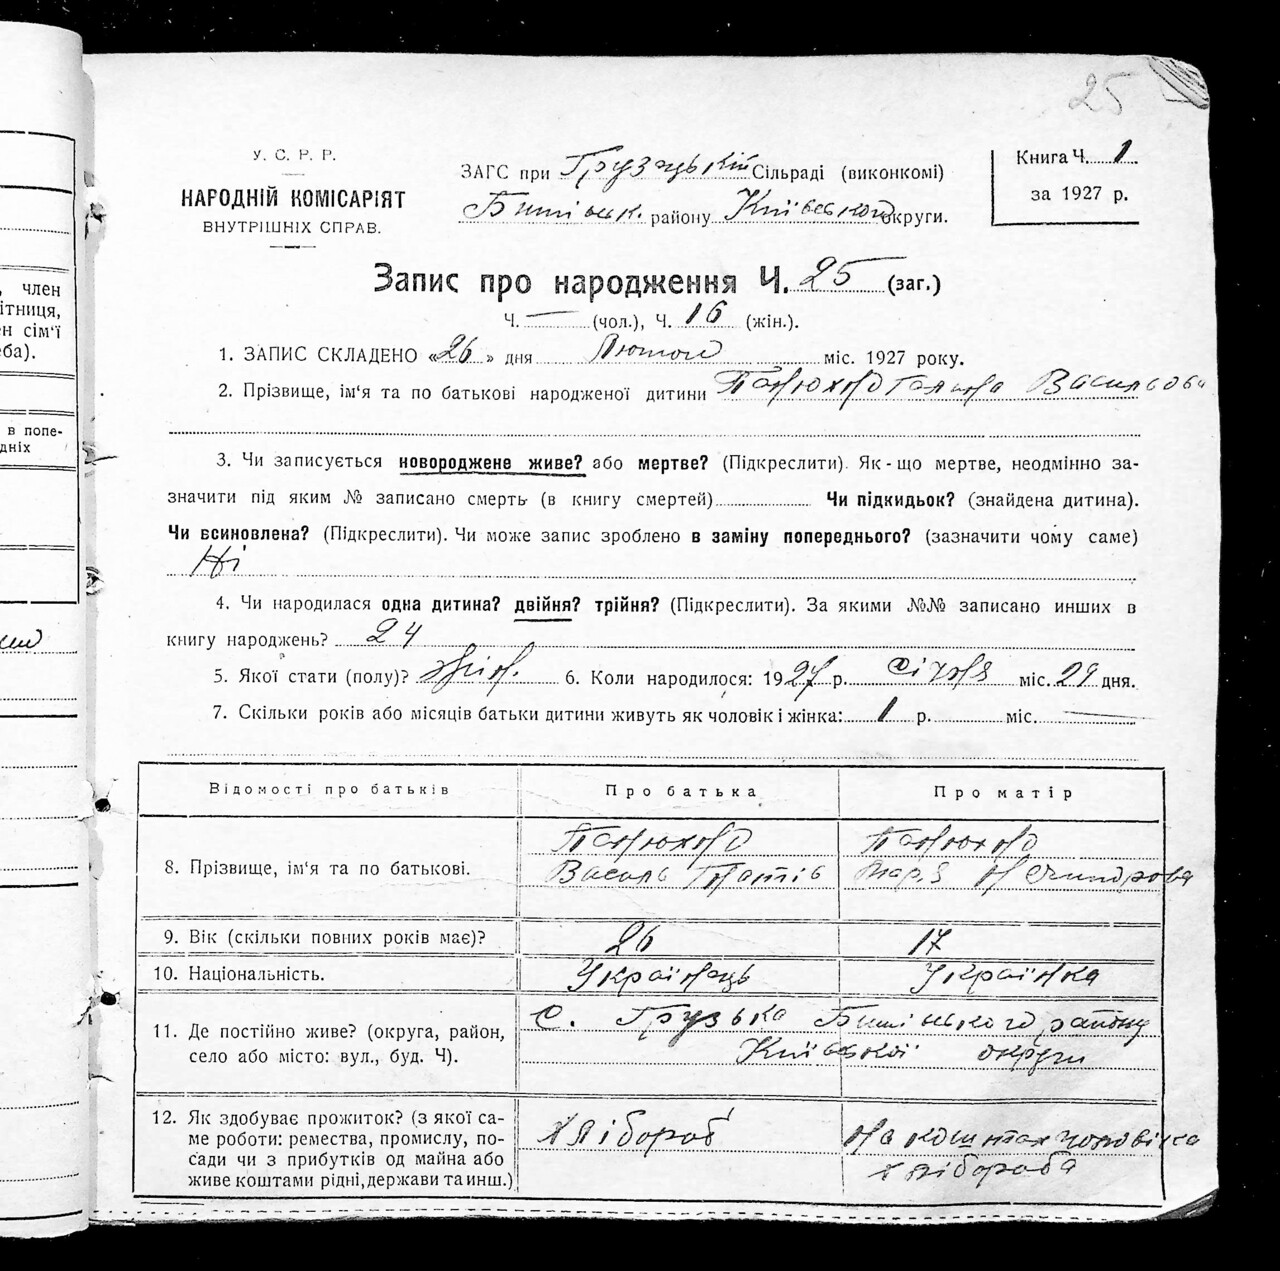 25
, член
ітниця,
н сім'ї
еба).
в попе-
дніх
У. С. Р. Р.
НАРОДНІЙ КОМІСАРІЯТ
ВНУТРІШНІХ СПРАВ.
ЗАГС при Грузській Сільраді (виконкомі)
Бишівськ. району Київського округи.
Книга Ч. 1
за 1927 р.
Запис про народження Ч. 25 (заг.)
Ч. — (чол.), Ч. 16 (жін.).
1. ЗАПИС СКЛАДЕНО «26» дня Лютого міс. 1927 року.
2. Прізвище, ім'я та по батькові народженої дитини Панюхно Галина Васильова
3. Чи записується новороджене живе? або мертве? (Підкреслити). Як-що мертве, неодмінно за-
значити під яким № записано смерть (в книгу смертей) Чи підкидьок? (знайдена дитина).
Чи всиновлена? (Підкреслити). Чи може запис зроблено в заміну попереднього? (зазначити чому саме)
Ні
4. Чи народилася одна дитина? двійня? трійня? (Підкреслити). За якими №№ записано инших в
книгу народжень? 24
5. Якої стати (полу)? жін. 6. Коли народилося: 1927 р. січня міс. 29 дня.
7. Скільки років або місяців батьки дитини живуть як чоловік і жінка: 1 р. міс. —
Відомості про батьків Про батька Про матір
8. Прізвище, ім'я та по батькові. Панюхно Панюхно
Василь Марія
9. Вік (скільки повних років має)? 26 17
10. Національність. Українець Українка
11. Де постійно живе? (округа, район, село або місто: вул., буд. Ч). с. Грузька Бишівського району
Київської округи
12. Як здобуває прожиток? (з якої са-
ме роботи: ремества, промислу, по-
сади чи з прибутків од майна або
живе коштами рідні, держави та инш.)
хлібороб
на коштах чоловіка
хлібороба